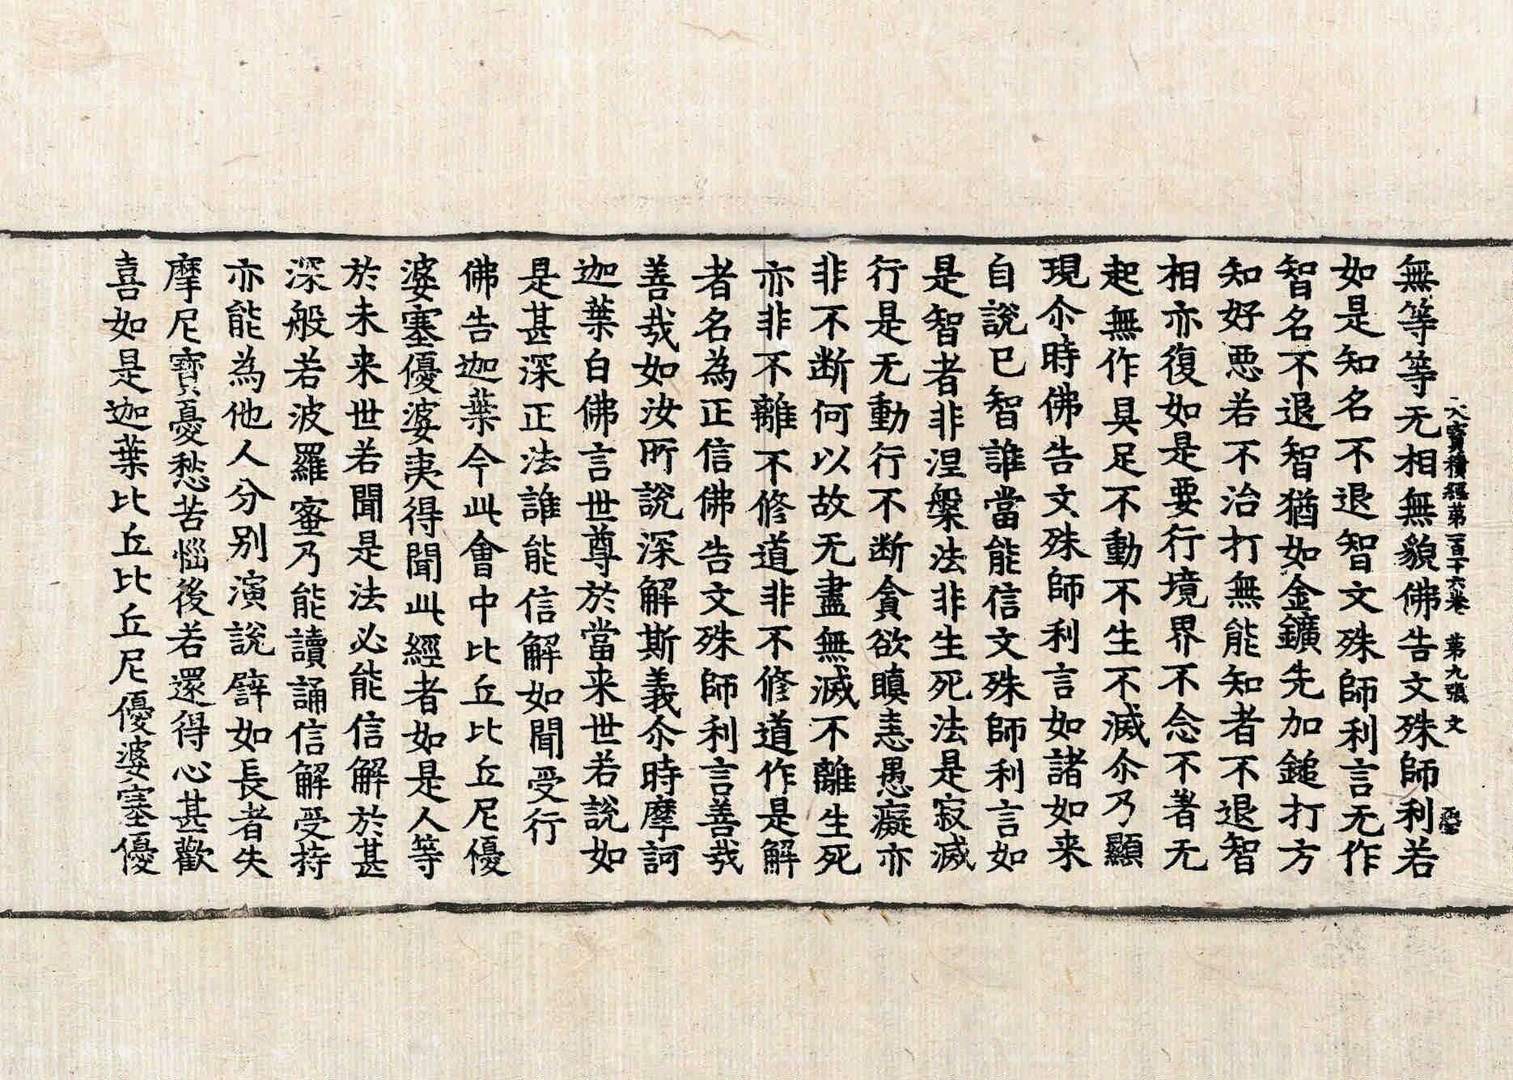 大寶積經第一百十六卷 第九張 文
無等等无相無貌佛告文殊師利若
如是知名不退智文殊師利言无作
智名不退智猶如金鑛先加鎚打方
知好惡若不治打無能知者不退智
相亦復如是要行境界不念不著无
起無作具足不動不生不滅尒乃顯
現尒時佛告文殊師利言如諸如来
自說已智誰當能信文殊師利言如
是智者非涅槃法非生死法是寂滅
行是无動行不断貪欲瞋恚愚癡亦
非不断何以故无盡無滅不離生死
亦非不離不修道非不修道作是解
者名為正信佛告文殊師利言善哉
善哉如汝所說深解斯義尒時摩訶
迦葉白佛言世尊於當来世若說如
是甚深正法誰能信解如聞受行
佛告迦葉今此會中比丘比丘尼優
婆塞優婆夷得聞此經者如是人等
於未来世若聞是法必能信解於甚
深般若波羅蜜乃能讀誦信解受持
亦能為他人分別演說譬如長者失
摩尼寶憂愁苦惱後若還得心甚歡
喜如是迦葉比丘比丘尼優婆塞優